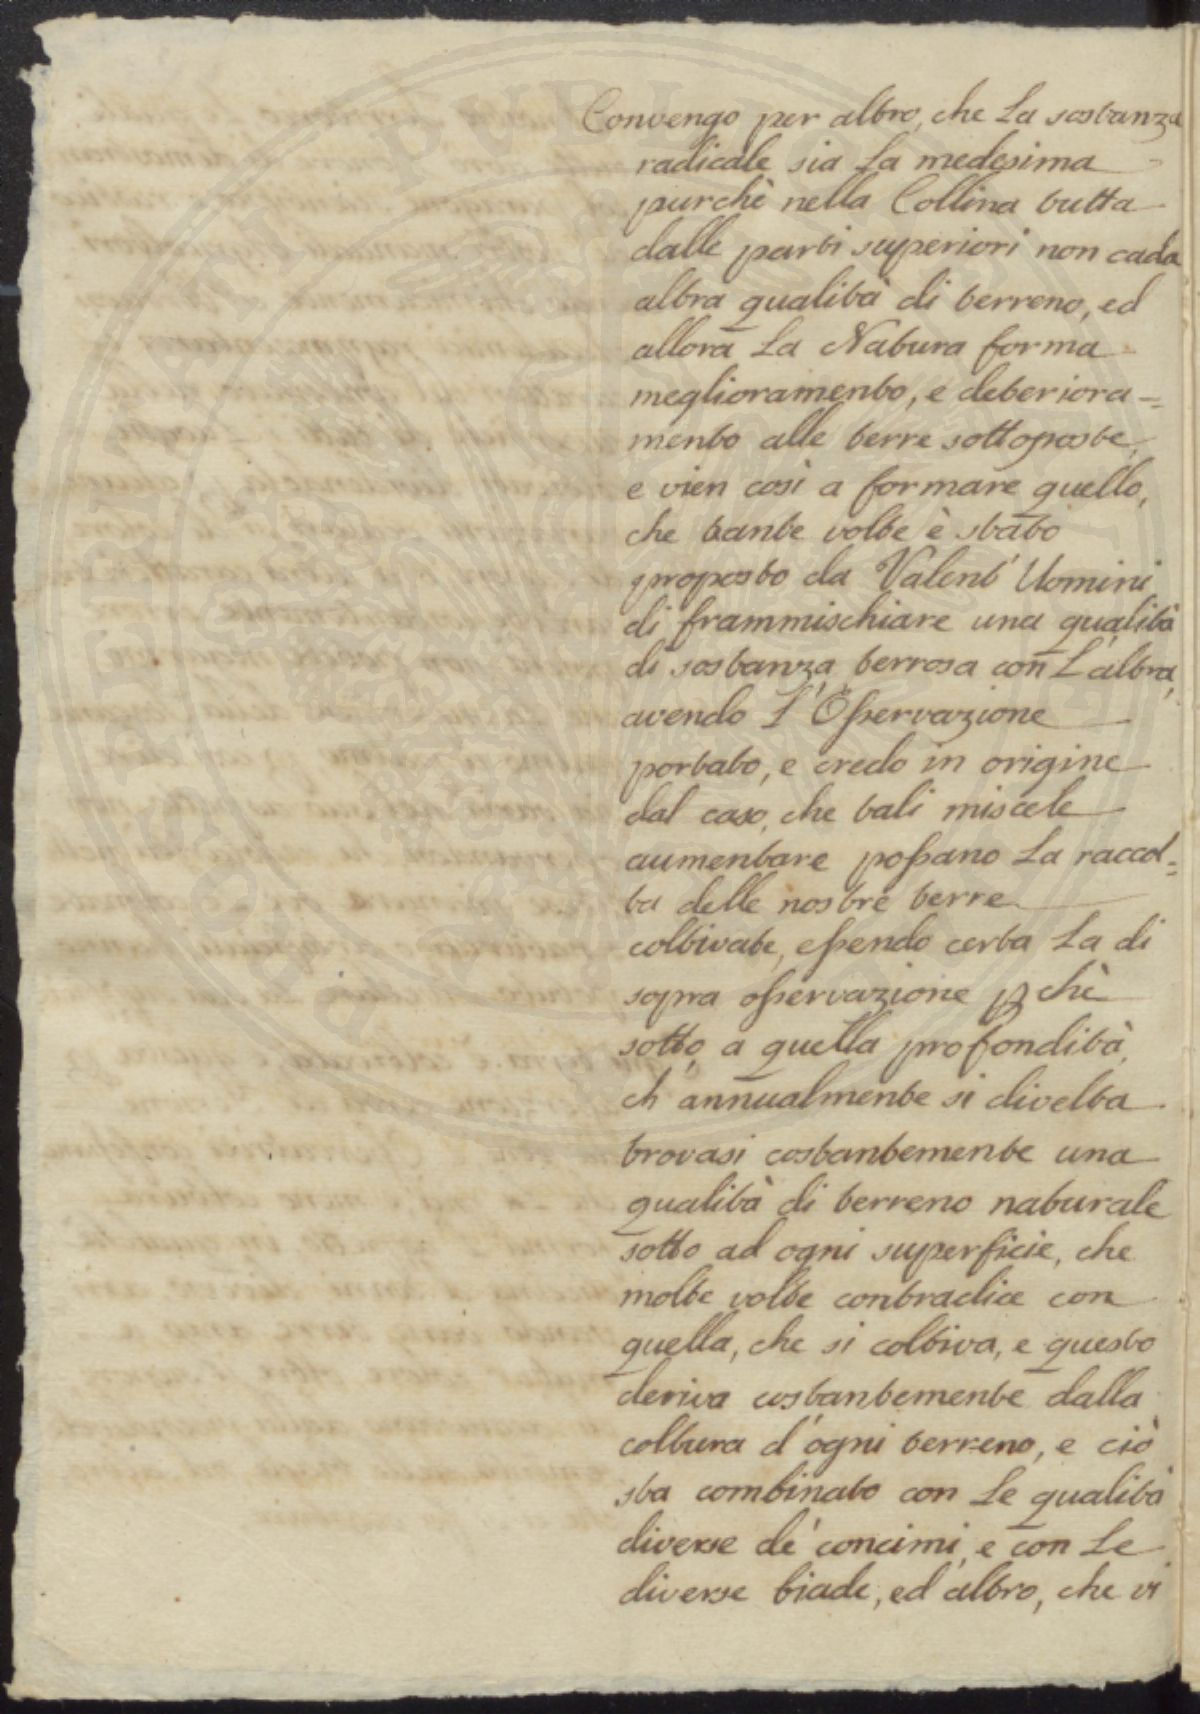 Convengo per altro, che la sostanza
radicale sia la medesima
purchè nella Collina tutta
dalle parti superiori non cada
altra qualità di terreno, ed
allora la Natura forma
meglioramento, e deteriora=
mento alle terre sottoposte,
e vien così a formare quello,
che tante volte è stato
proposto da Valent' Uomini
di frammischiare una qualità
di sostanza terrosa con l'altra,
avendo l'Oſservazione
portato, e credo in origine
dal caso, che tali miscele
aumentare poſsano la raccol=
ta delle nostre terre
coltivate, eſsendo certa la di
sopra oſservazione pchè
sotto a quella profondità,
ch annualmente si divelta
trovasi costantemente una
qualità di terreno naturale
sotto ad ogni superficie, che
molte volte contradice con
quella, che si coltiva, e questo
deriva costantemente dalla
coltura d'ogni terreno, e ciò
sta combinato con le qualità
diverse de' concimi, e con le
diverse biade, ed altro, che vi